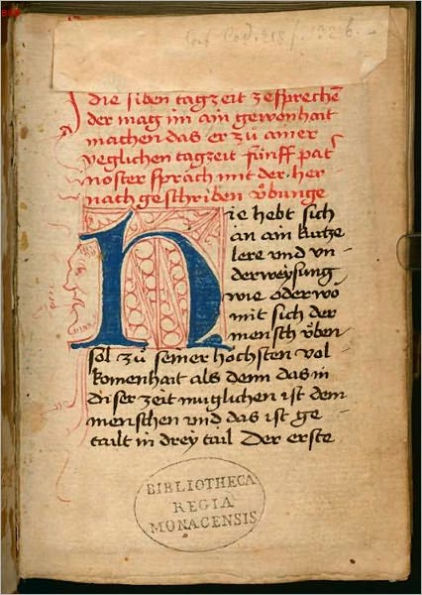 die siben tagzeit zesprechē
der mag im ain gewonhait
machen das er zů ainer
yeglichen tagzeit fünff pat̄
noster sprech mit der her
nach geschriben übunge
Hie hebt sich
an ain kurtze
lere vnd vn
derweysung
wie oder wo
mit sich der
mensch üben
sol zů seiner höchsten vol
komenhait als denn das in
diser zeit muglichen ist dem
menschen vnd das ist ge
tailt in drey tail Der erste
BIBLIOTHECA
REGIA
MONACENSIS